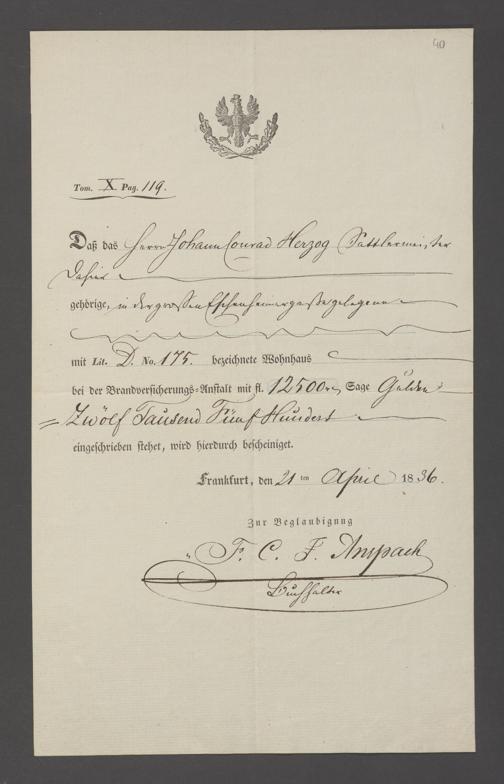 40
Tom. X. Pag. 119.
Daß das Herrn Johann Conrad Herzog Sattlermeister
dahier
gehörige, in der großen Eschenheimergaße gelegene
mit Lit. D. No. 175. bezeichnete Wohnhaus
bei der Brandversicherungs-Anstalt mit fl. 12500 Sage Gulden
Zwölf Tausend Fünf Hundert
eingeschrieben stehet, wird hierdurch bescheiniget.
Frankfurt, den 21 ten April 1836.
Zur Beglaubigung
F. C. F. Anspach
Buchhalter